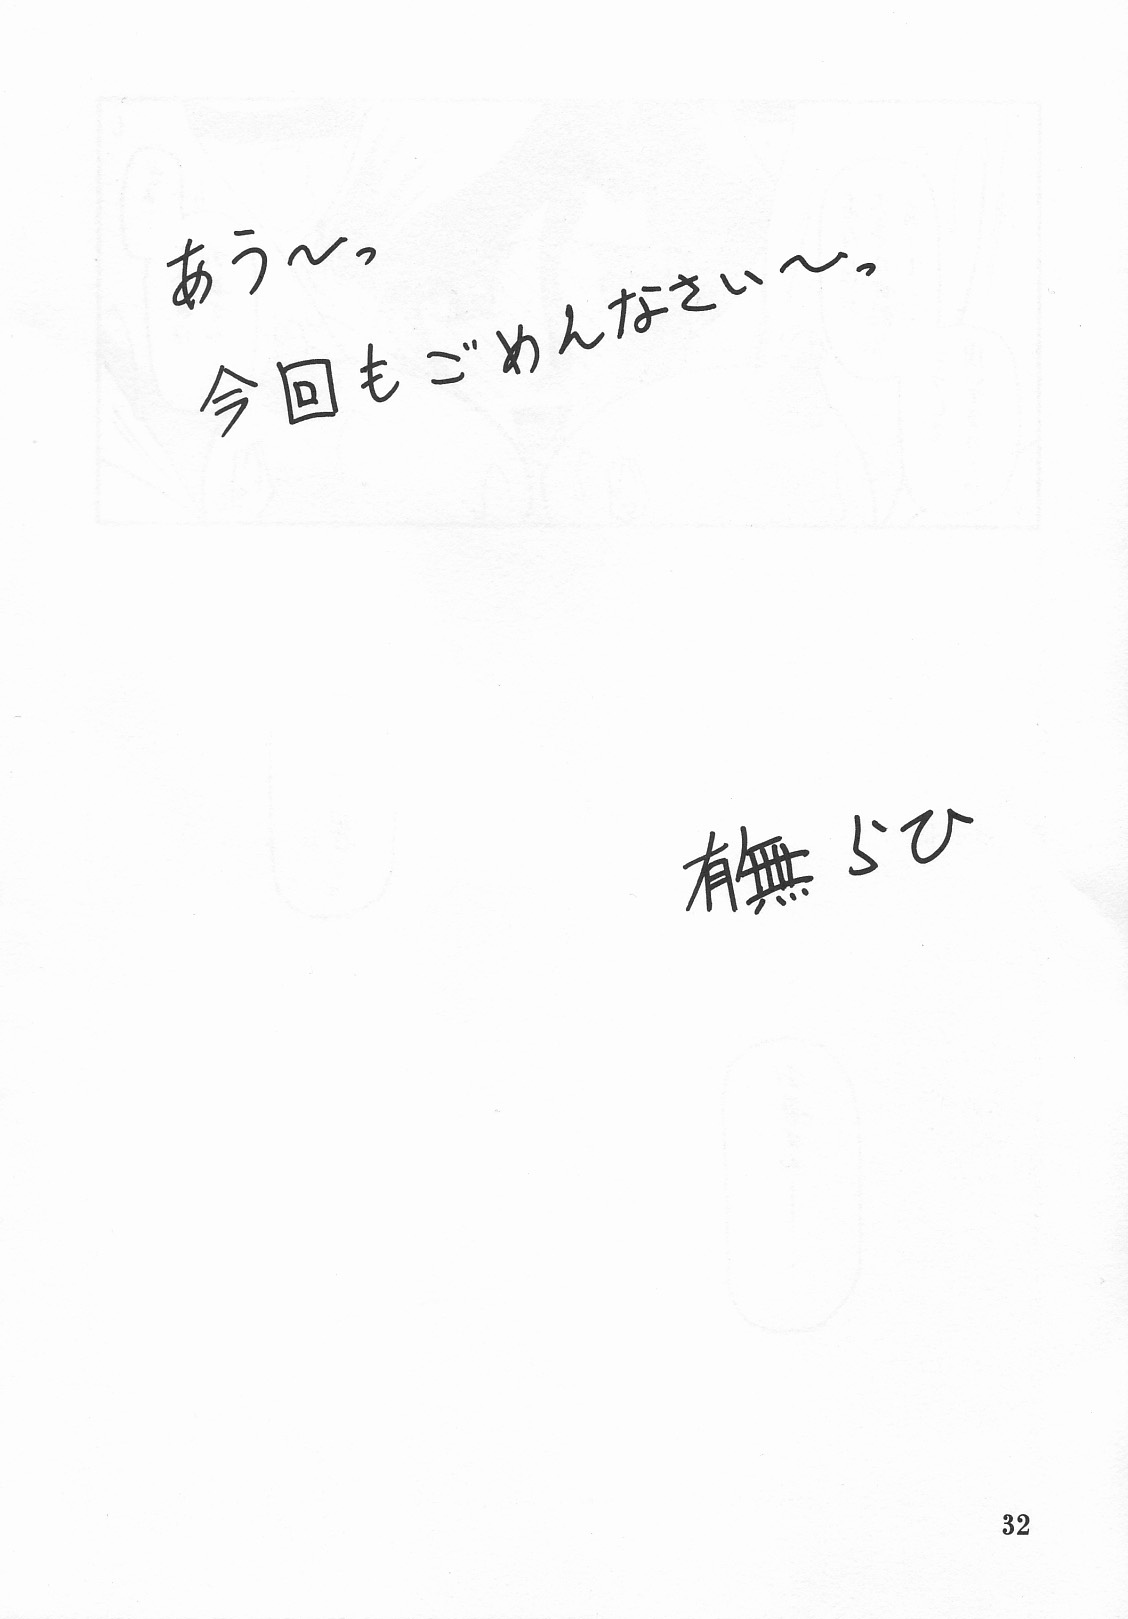 あう〜っ
今回もごめんなさぃ〜っ
有無らひ
32